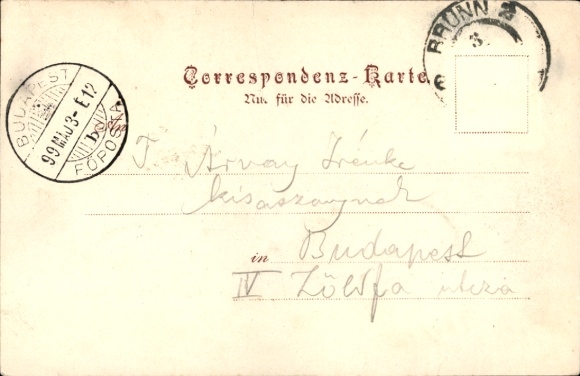 BRÜNN 2
3
Correspondenz-Karte.
Nur für die Adresse.
BUDAPEST
99 MAJ 3 - E 12
FŐPOSTA
An
T. Árvay Irénke
kisasszonynak
in Budapest
IV Zöldfa utcza